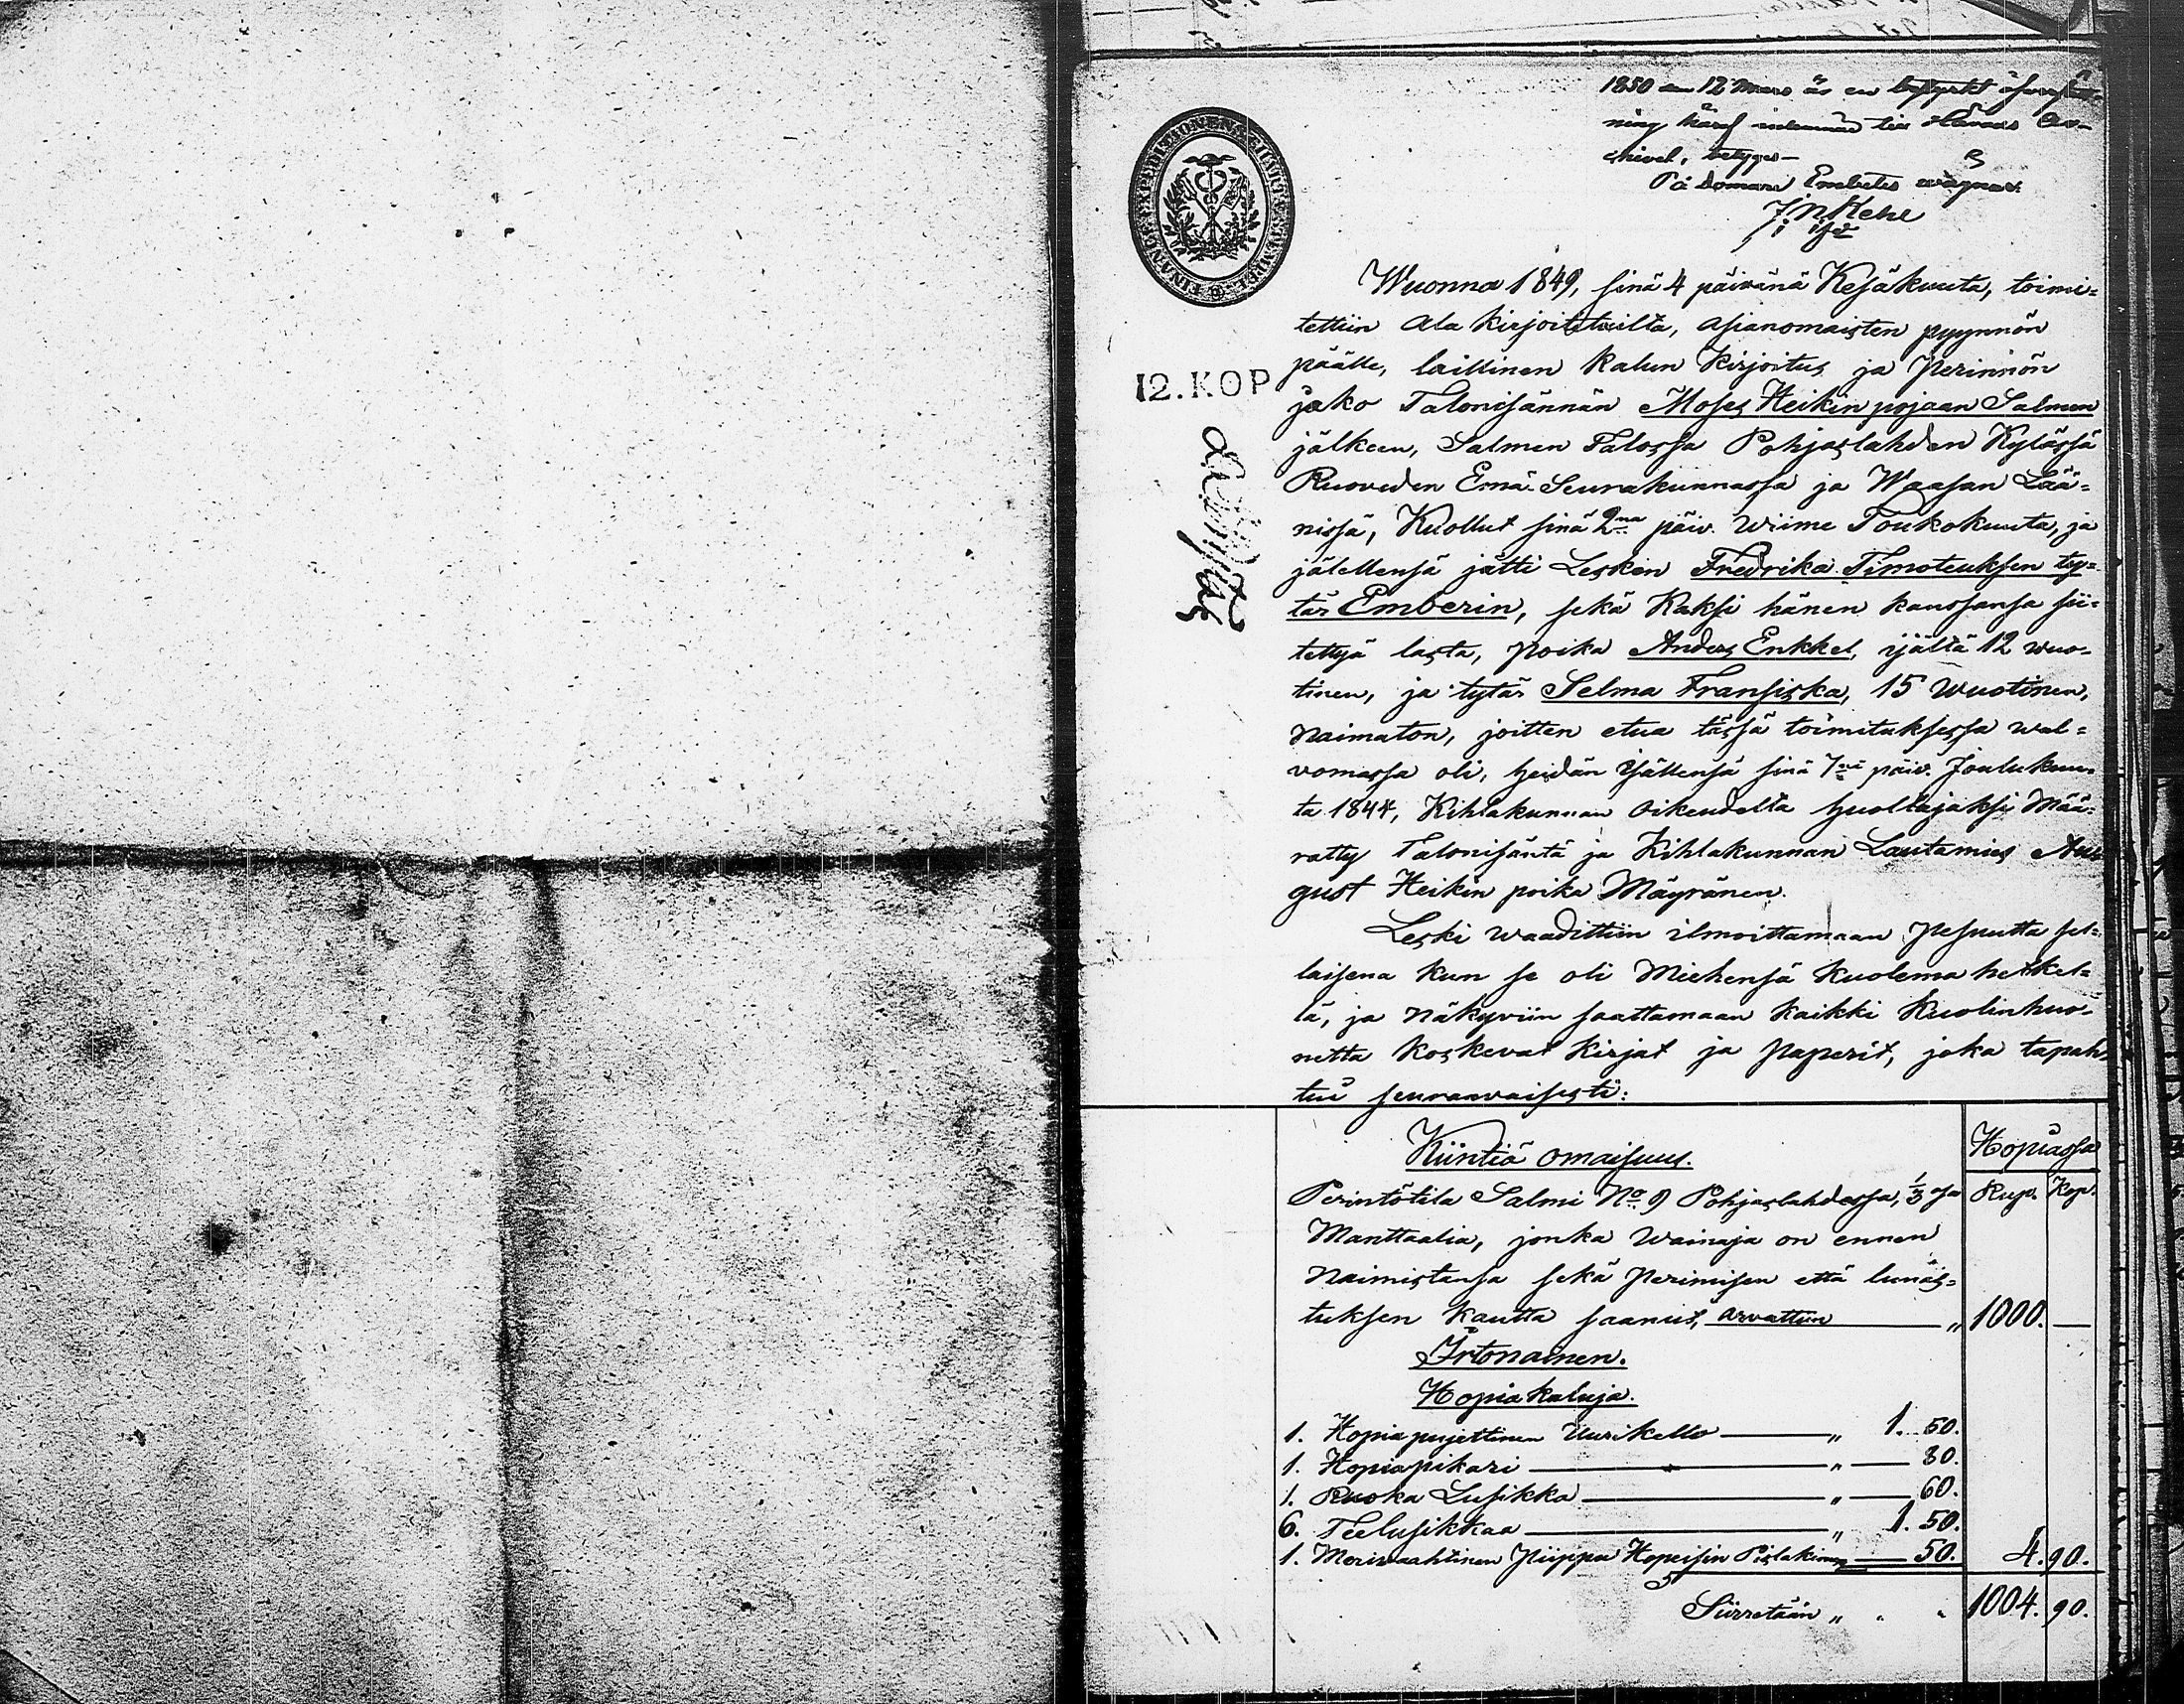 1850 den 12 Mars är en bestyrkt öfversätt-
ning häraf inlemnad till Härads Ar-
chivet, betygar
På Domare Embetes vägnar.
12. KOP
Wuonna 1849, sinä 4 päivänä Kesäkuuta, toimi-
tettiin ala kirjoitetuilta, asianomaisten pyynnön
päälle, laillinen kalun Kirjoitus ja Perinnön
jako Talonisännän Moses Heikin pojaan Salmen
jälkeen, Salmen Talossa Pohjaslahden Kylässä
Ruoveden Emä-Seurakunnassa ja Waasan Lää-
nissä, Kuollut sinä 2na päiv. wiime Toukokuuta, ja
jälellensä jätti Lesken Fredrika Timoteuksen ty-
tär Emberin, sekä Kaksi hänen kanssansa sii-
tettyä lasta, poika Anders Enkkel, ijältä 12 wuo-
tinen, ja tytär Selma Fransiska, 15 Wuotinen,
Naimaton, joitten etua tässä toimituksessa wal-
vomassa oli, heidän Isällensä sinä 7nä päiv. Joulukuu-
ta 1844, Kihlakunnan Oikeudelta huoltajaksi Mää-
rätty Talonisäntä ja Kihlakunnan Lautamies Au-
gust Heikin poika Mäyränen.
Leski waadittiin ilmoittamaan Pesuutta sel-
laisena kun se oli Miehensä kuolema hetkel-
lä, ja näkyviin saattamaan kaikki Kuolinhuo-
netta koskevat kirjat ja paperit, joka tapah-
tui seuraavaisesti:
Kiintiä omaisuus.
Hopiassa
Perintötila Salmi No 9 Pohjaslahdessa, 1/3 osa
Rup. Kop.
Manttaalia, jonka Wainaja on ennen
Naimistansa sekä Perimisen että lunas-
tuksen kautta saanut, arvattiin „ 1000. —
Irtonainen.
Hopia kaluja.
1. Hopia Uurikello „ 1. 50.
1. Hopiapikari „ 80.
1. Ruoka Lusikka „ 60.
6. Teelusikkaa „ 1. 50.
1. Merivaahtinen Piippu Hopeisin 50. 4. 90.
Siirretään „ „ „ 1004. 90.